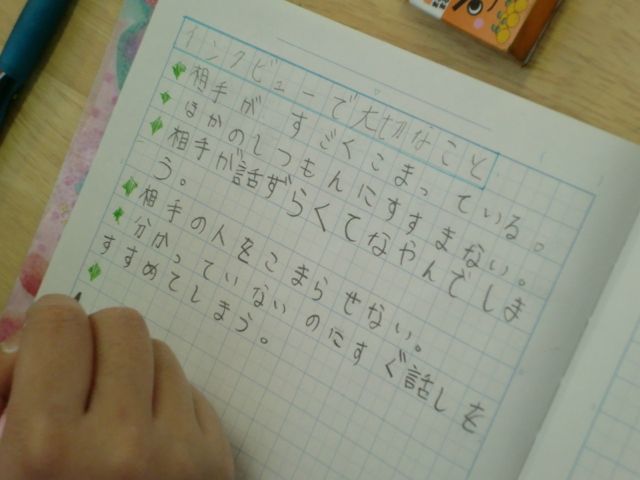 インタビューで大切なこと
相手がすごくこまっている。
ほかのしつもんにすすまない。
相手が話ずらくてなやんでしま
う。
相手の人をこまらせない。
分かっていないのにすぐ話しを
すすめてしまう。